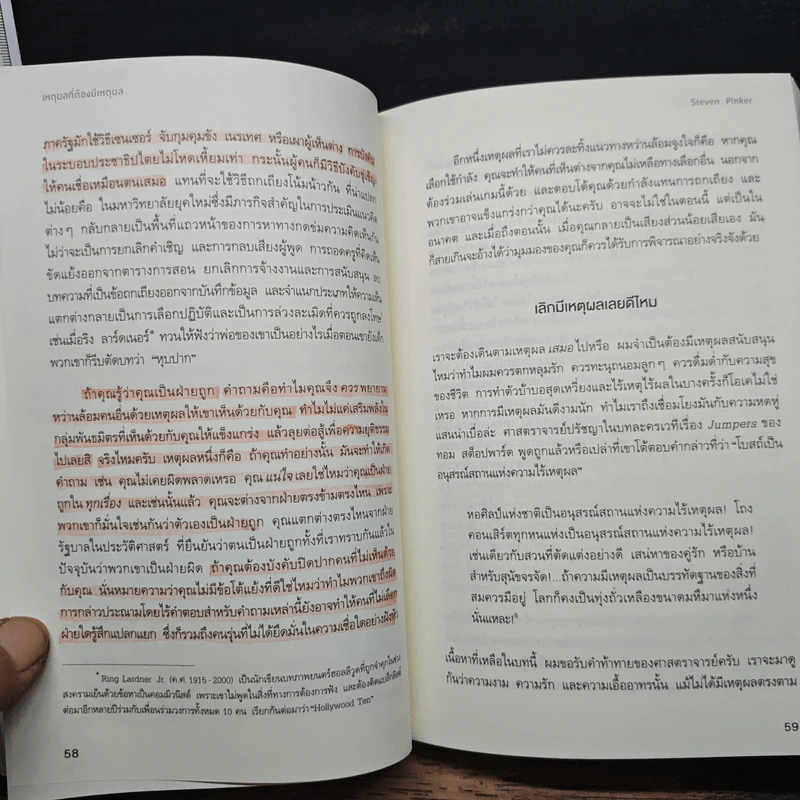 เหตุผลที่ต้องมีเหตุผล
ภาครัฐมักใช้วิธีเซนเซอร์ จับกุมคุมขัง เนรเทศ หรือเผาผู้เห็นต่าง การบังคับ
ในระบอบประชาธิปไตยไม่โหดเหี้ยมเท่า กระนั้นผู้คนก็มีวิธีบังคับขู่เข็ญ
ให้คนเชื่อเหมือนตนเสมอ แทนที่จะใช้วิธีถกเถียงโน้มน้าวกัน ที่น่าแปลก
ไม่น้อยคือ ในมหาวิทยาลัยยุคใหม่ซึ่งมีภารกิจสำคัญในการประเมินแนวคิด
ต่างๆ กลับกลายเป็นพื้นที่แถวหน้าของการหาทางกดข่มความคิดเห็นกัน
ไม่ว่าจะเป็นการยกเลิกคำเชิญ และการกลบเสียงผู้พูด การถอดครูที่คิดเห็น
ขัดแย้งออกจากตารางการสอน ยกเลิกการจ้างงานและการสนับสนุน ลบ
บทความที่เป็นข้อถกเถียงออกจากบันทึกข้อมูล และจำแนกประเภทให้ความเห็น
แตกต่างกลายเป็นการเลือกปฏิบัติและเป็นการล่วงละเมิดที่ควรถูกลงโทษ
เช่นเมื่อริง ลาร์ดเนอร์* ทวนให้ฟังว่าพ่อของเขาเป็นอย่างไรเมื่อตอนเขายังเด็ก
พวกเขาก็รีบตัดบทว่า “หุบปาก”
ถ้าคุณรู้ว่าคุณเป็นฝ่ายถูก คำถามคือทำไมคุณจึง ควร พยายาม
หว่านล้อมคนอื่นด้วยเหตุผลให้เขาเห็นด้วยกับคุณ ทำไมไม่แค่เสริมพลังใน
กลุ่มพันธมิตรที่เห็นด้วยกับคุณให้แข็งแกร่ง แล้วลุยต่อสู้เพื่อความยุติธรรม
ไปเลยสิ จริงไหมครับ เหตุผลหนึ่งก็คือ ถ้าคุณทำอย่างนั้น มันจะทำให้เกิด
คำถาม เช่น คุณไม่เคยผิดพลาดเหรอ คุณ แน่ใจ เลยใช่ไหมว่าคุณเป็นฝ่าย
ถูกใน ทุกเรื่อง และเช่นนั้นแล้ว คุณจะต่างจากฝ่ายตรงข้ามตรงไหน เพราะ
พวกเขาก็มั่นใจเช่นกันว่าตัวเองเป็นฝ่ายถูก คุณแตกต่างตรงไหนจากฝ่าย
รัฐบาลในประวัติศาสตร์ ที่ยืนยันว่าตนเป็นฝ่ายถูกทั้งที่เราทราบกันแล้วใน
ปัจจุบันว่าพวกเขาเป็นฝ่ายผิด ถ้าคุณต้องบังคับปิดปากคนที่ไม่เห็นด้วย
กับคุณ นั่นหมายความว่าคุณไม่มีข้อโต้แย้งที่ดีใช่ไหมว่าทำไมพวกเขาถึงผิด
การกล่าวประณามโดยไร้คำตอบสำหรับคำถามเหล่านี้ยังอาจทำให้คนที่ไม่เลือก
ฝ่ายใดรู้สึกแปลกแยก ซึ่งก็รวมถึงคนรุ่นที่ไม่ได้ยึดมั่นในความเชื่อใดอย่างฝังหัว
* Ring Lardner Jr. (ค.ศ. 1915 - 2000) เป็นนักเขียนบทภาพยนตร์ฮอลลีวูดที่ถูกจำคุกในช่วง
สงครามเย็นด้วยข้อหาเป็นคอมมิวนิสต์ เพราะเขาไม่พูดในสิ่งที่ทางการต้องการฟัง และต้องติดแบล็กลิสต์
ต่อมาอีกหลายปีร่วมกับเพื่อนร่วมวงการทั้งหมด 10 คน เรียกกันต่อมาว่า “Hollywood Ten”
58
Steven Pinker
อีกหนึ่งเหตุผลที่เราไม่ควรละทิ้งแนวทางหว่านล้อมจูงใจก็คือ หากคุณ
เลือกใช้กำลัง คุณจะทำให้คนที่เห็นต่างจากคุณไม่เหลือทางเลือกอื่น นอกจาก
ต้องร่วมเล่นเกมนี้ด้วย และตอบโต้คุณด้วยกำลังแทนการถกเถียง และ
พวกเขาอาจแข็งแกร่งกว่าคุณได้นะครับ อาจจะไม่ใช่ในตอนนี้ แต่เป็นใน
อนาคต และเมื่อถึงตอนนั้น เมื่อคุณกลายเป็นเสียงส่วนน้อยเสียเอง มัน
ก็สายเกินจะอ้างได้ว่ามุมมองของคุณก็ควรได้รับการพิจารณาอย่างจริงจังด้วย
เลิกมีเหตุผลเลยดีไหม
เราจะต้องเดินตามเหตุผล เสมอ ไปหรือ ผมจำเป็นต้องมีเหตุผลสนับสนุน
ไหมว่าทำไมผมควรตกหลุมรัก ควรทะนุถนอมลูกๆ ควรดื่มด่ำกับความสุข
ของชีวิต การทำตัวบ้าบอสุดเหวี่ยงและไร้เหตุไร้ผลในบางครั้งก็โอเคไม่ใช่
เหรอ หากการมีเหตุผลมันดีงามนัก ทำไมเราถึงเชื่อมโยงมันกับความหดหู่
แสนน่าเบื่อล่ะ ศาสตราจารย์ปรัชญาในบทละครเวทีเรื่อง Jumpers ของ
ทอม สต็อปพาร์ด พูดถูกแล้วหรือเปล่าที่เขาโต้ตอบคำกล่าวที่ว่า “โบสถ์เป็น
อนุสรณ์สถานแห่งความไร้เหตุผล”
หอศิลป์แห่งชาติเป็นอนุสรณ์สถานแห่งความไร้เหตุผล! โถง
คอนเสิร์ตทุกหนแห่งเป็นอนุสรณ์สถานแห่งความไร้เหตุผล!
เช่นเดียวกับสวนที่ตัดแต่งอย่างดี เสน่หาของคู่รัก หรือบ้าน
สำหรับสุนัขจรจัด!...ถ้าความมีเหตุผลเป็นบรรทัดฐานของสิ่งที่
สมควรมีอยู่ โลกก็คงเป็นทุ่งถั่วเหลืองขนาดมหึมาแห่งหนึ่ง
นั่นแหละ!⁸
เนื้อหาที่เหลือในบทนี้ ผมขอรับคำท้าทายของศาสตราจารย์ครับ เราจะมาดู
กันว่าความงาม ความรัก และความเอื้ออาทรนั้น แม้ไม่ได้มีเหตุผลตรงตาม
59